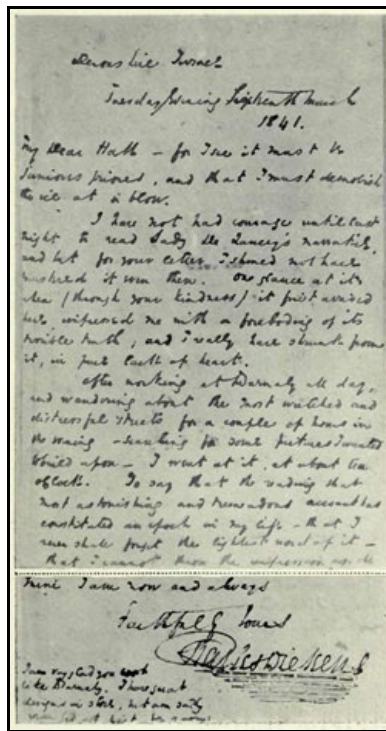 Devonshire Terrace
Tuesday Evening Sixteenth March
1841.
My Dear Hall – for I see it must be
"Junious priores", and that I must demolish
the ice at a blow.
I have not had courage until last
night to read Lady De Lancey's narrative,
and but for your letter, I should not have
mustered it even then. One glance at it
when (through your kindness) it first arrived
here, impressed me with a foreboding of its
terrible truth, and I really have shrunk from
it, in pure lack of heart.
After working at Barnaby all day,
and wandering about the most wretched and
distressful streets for a couple of hours in
the evening – searching for some pictures I wanted
to build upon – I went at it, at about ten
oClock. To say that the reading that
most astonishing and tremendous account has
constituted an epoch in my life – that I
never shall forget the lightest word of it –
that I cannot throw the impression aside
mine I am now and always
Faithfully Yours
Charles Dickens
I am very glad you
like Barnaby. I have great
designs in store, but am sadly